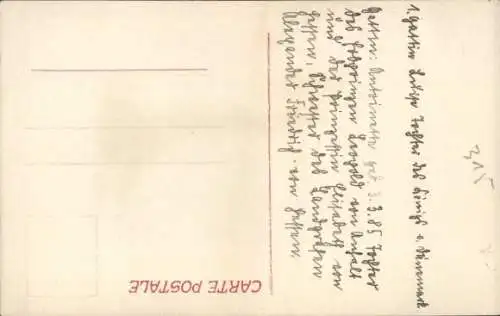 1. Gattin Luise Tochter des Königs v. Dänemark
Gattin: Antoinette geb. 3.3.85 Tochter
des Erbprinzen Leopold von Anhalt
und der Prinzessin Elisabeth von
Hessen, Schwester des Landgrafen
Alexander Friedrich von Hessen.
3,15
CARTE POSTALE